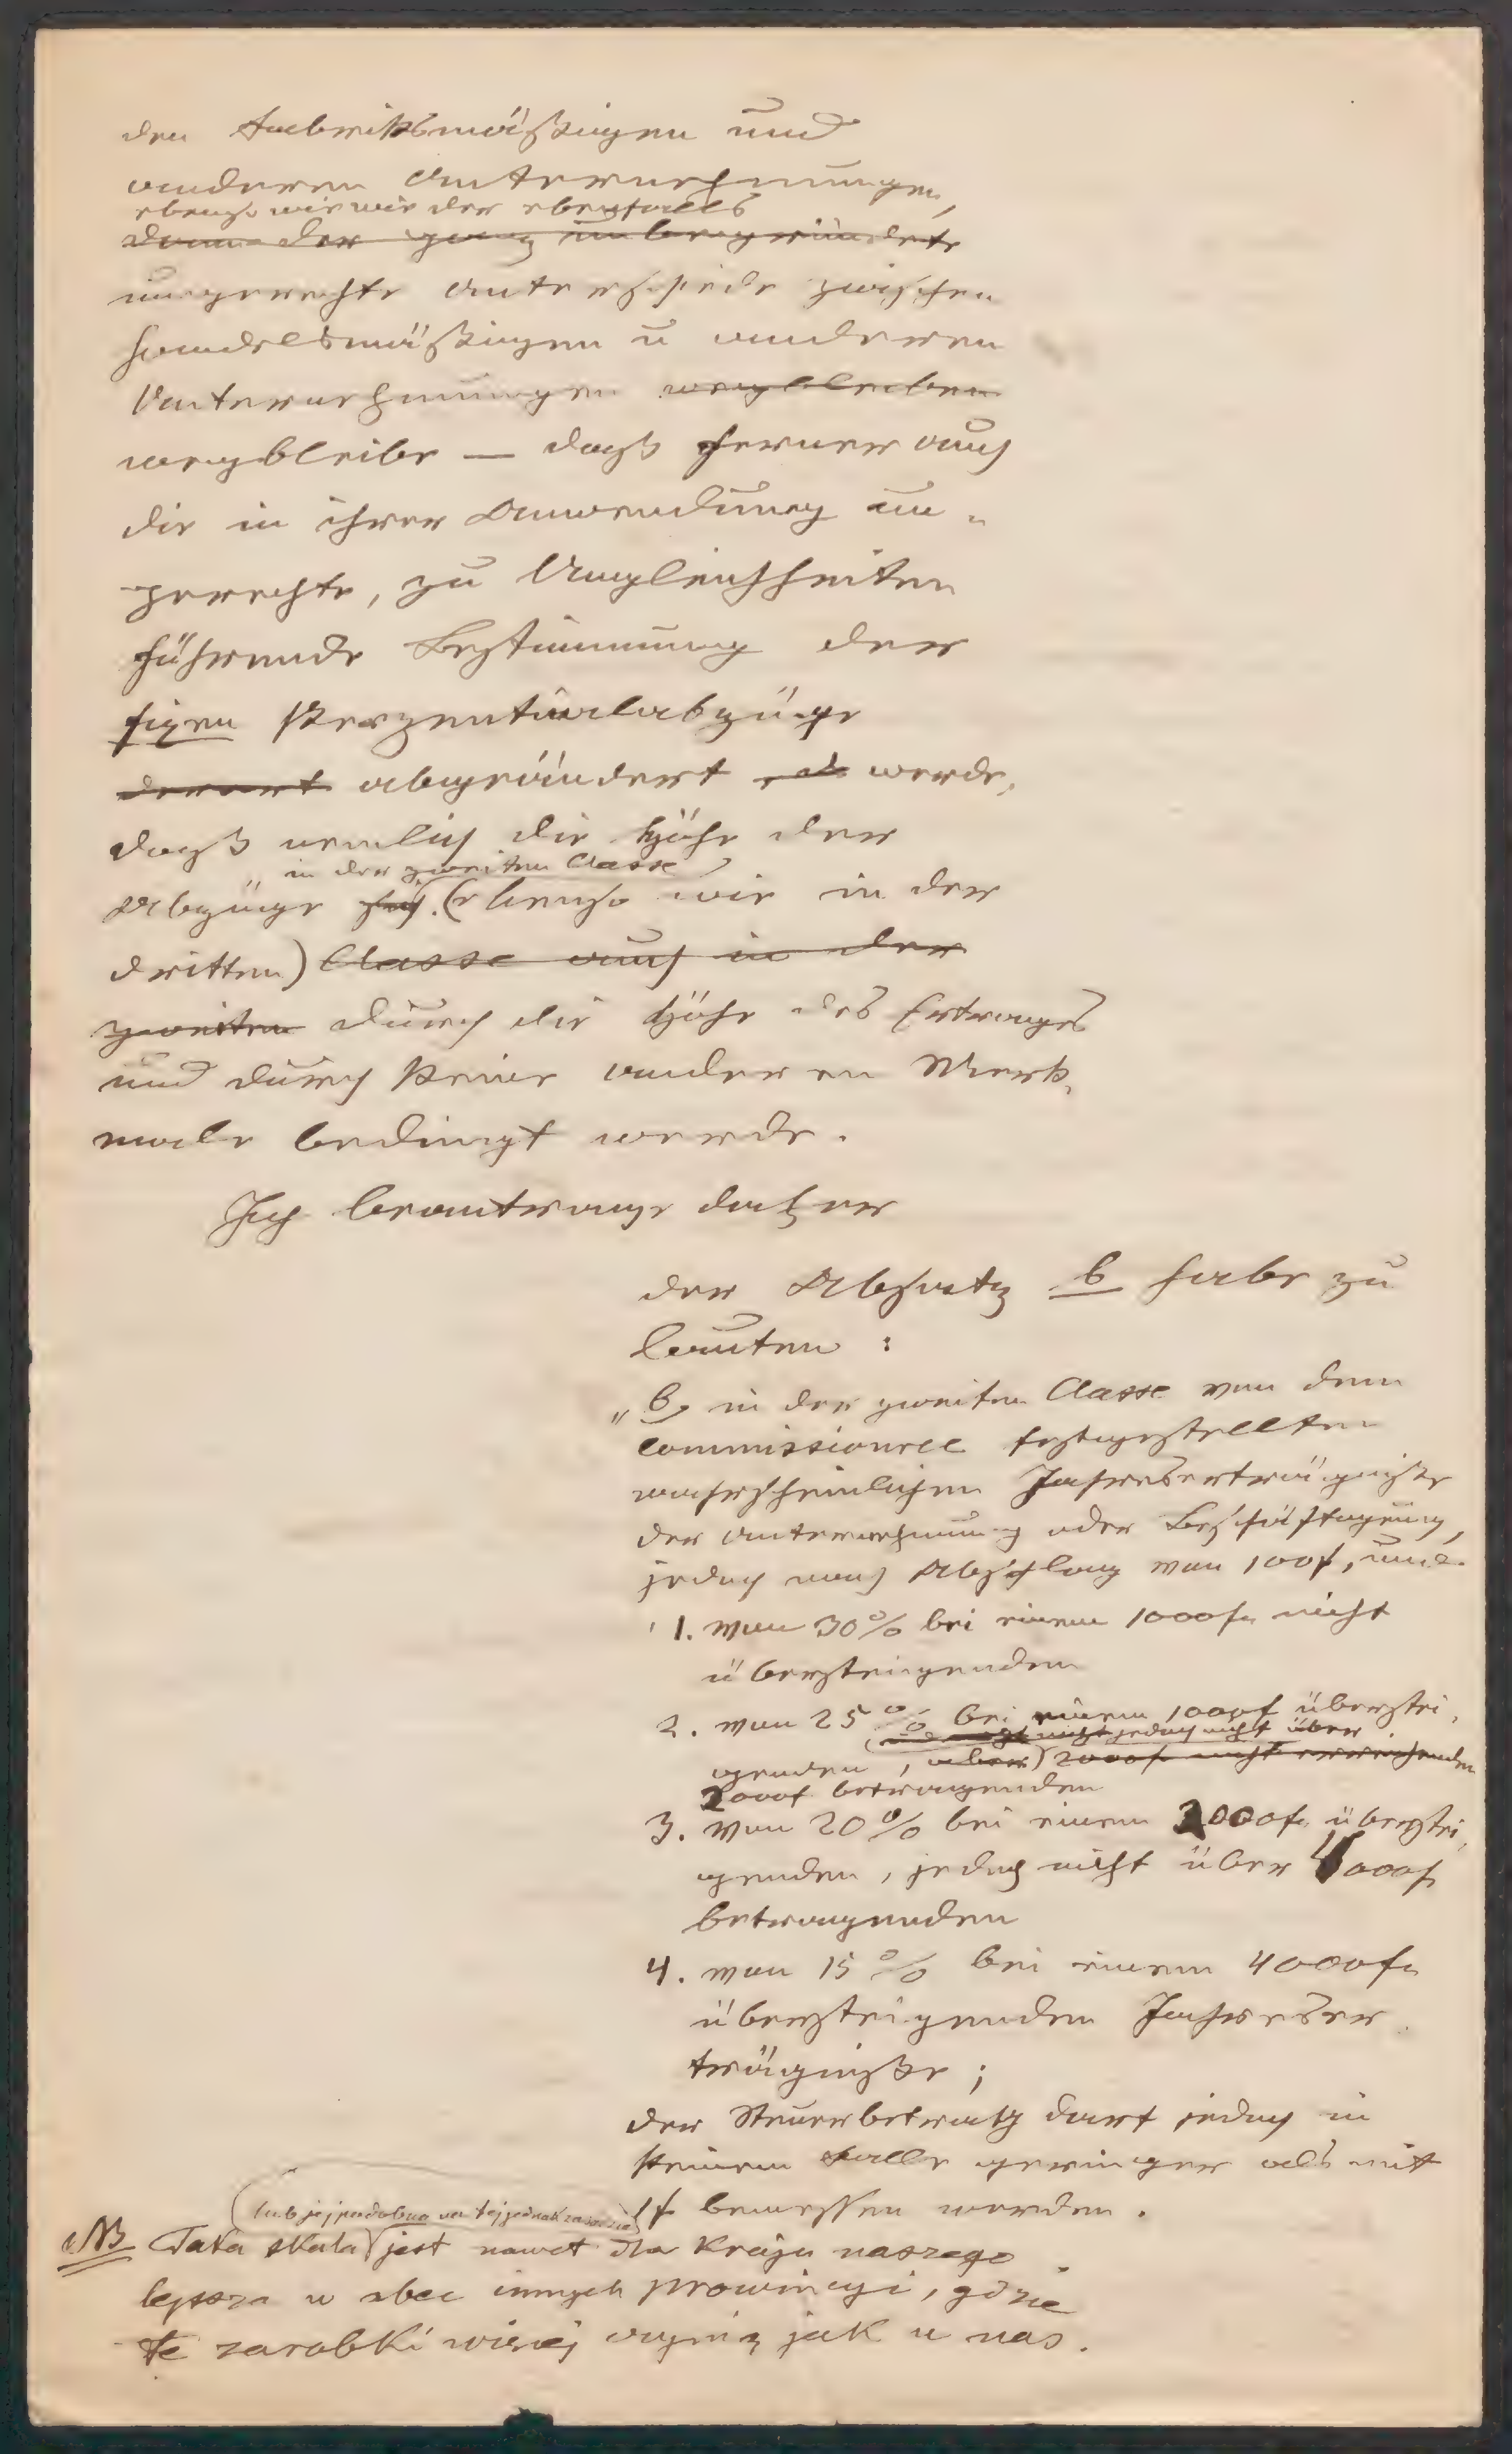 den Fabriksmäßigen und
anderen Unternehmungen,
ebenso wie wie der ebenfalls
dann der ganz unbegründete
ungerechte Unterschiede zwischen
handelsmäßigen u anderen
Unternehmungen wegbleiben
wegbleibe — daß ferner auch
die in ihrer Anwendung un-
gerechte, zu Ungleichheiten
führende Bestimmung der
fixen Perzentualabzüge
derart abgeändert werde,
daß nemlich die Höhe der
in der zweiten Classe
Abzüge (ebenso wie in der
dritten) Classe auch in der
zweiten durch die Höhe des Ertrages
und durch keine anderen Merk-
male bedingt werde.
Ich beantrage daher
der Absatz b habe zu
lauten :
„b, in der zweiten Classe von dem
commissionell festgestellten
wahrscheinlichen Jahreserträgniße
der Unternehmung oder Beschäftigung,
jedoch nach Abschlag von 100f, und
1. von 30% bei einem 1000f. nicht
übersteigenden
2. von 25% bei einem 1000f überstei-
nicht jedoch nicht über
genden, aber 2000f. nicht erreichenden
2000f betragenden
3. von 20% bei einem 2000f. überstei-
genden, jedoch nicht über 4000f
betragenden
4. von 15% bei einem 4000f.
übersteigenden Jahreser-
trägniße ;
der Steuerbetrag darf jedoch in
keinem Falle geringer als mit
1f bemessen werden.
(lub jej podobna na tej jednak zasadzie)
NB Taka skala jest nawet dla kraju naszego
lepsza w obec innych prowincyi, gdzie
te zarobki więcej czynią jak u nas.